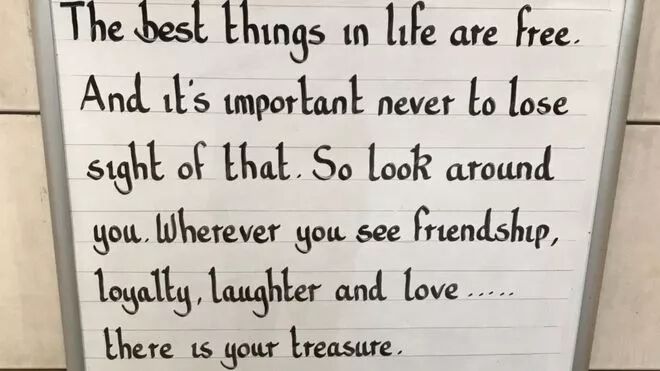 The best things in life are free.
And it's important never to lose
sight of that. So look around
you. Wherever you see friendship,
loyalty, laughter and love.....
there is your treasure.